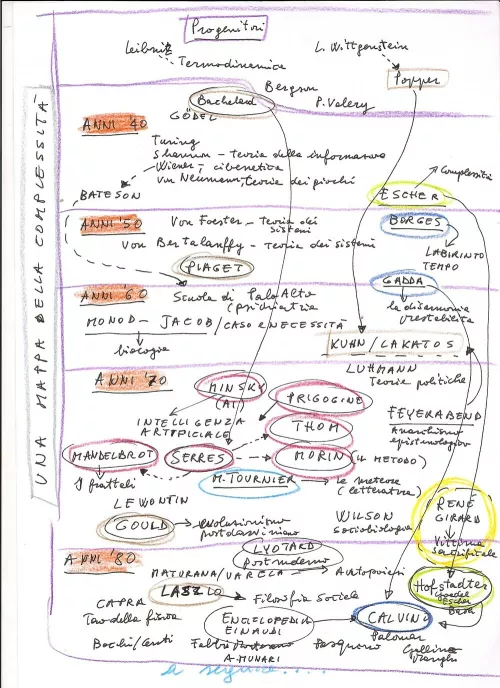 UNA MAPPA DELLA COMPLESSITÀ
Progenitori
Leibnitz
L. Wittgenstein
Termodinamica
Bergson
Popper
Bachelard
P. Valery
ANNI '40
GÖDEL
Turing
Shannon - teoria della informazione
Wiener - cibernetica
Von Neumann, teoria dei giochi
Complessità
BATESON
ESCHER
ANNI '50
Von Foester - Teoria dei
sistemi
BORGES
Von Bertalanffy - teoria dei sistemi
LABIRINTO
TEMPO
PIAGET
GADDA
ANNI '60
Scuola di Palo Alto
(psichiatria
la disarmonia
prestabilita
MONOD - JACOB / CASO E NECESSITÀ
biologia
KUHN / LAKATOS
LUHMANN
Teorie politiche
ANNI '70
MINSKY
(AI)
PRIGOGINE
INTELLIGENZA
ARTIFICIALE
THOM
FEYERABEND
Anarchismo
epistemologico
MANDELBROT
SERRES
MORIN
(IL METODO)
I frattali
M. TOURNIER
le meteore
(letteratura)
LEWONTIN
WILSON
sociobiologia
RENÉ
GIRARD
GOULD
evoluzionismo
postdarwiniano
Vittima
sacrificale
ANNI '80
LYOTARD
postmoderno
MATURANA / VARELA
Autopoiesi
Hofstadter
Goedel
Escher
Bach
LASZLO
Filosofia sociale
CAPRA
Tao della fisica
ENCICLOPEDIA
EINAUDI
CALVINO
Palomar
Bocchi/Ceruti
Fabbri
A. MUNARI
a seguire....